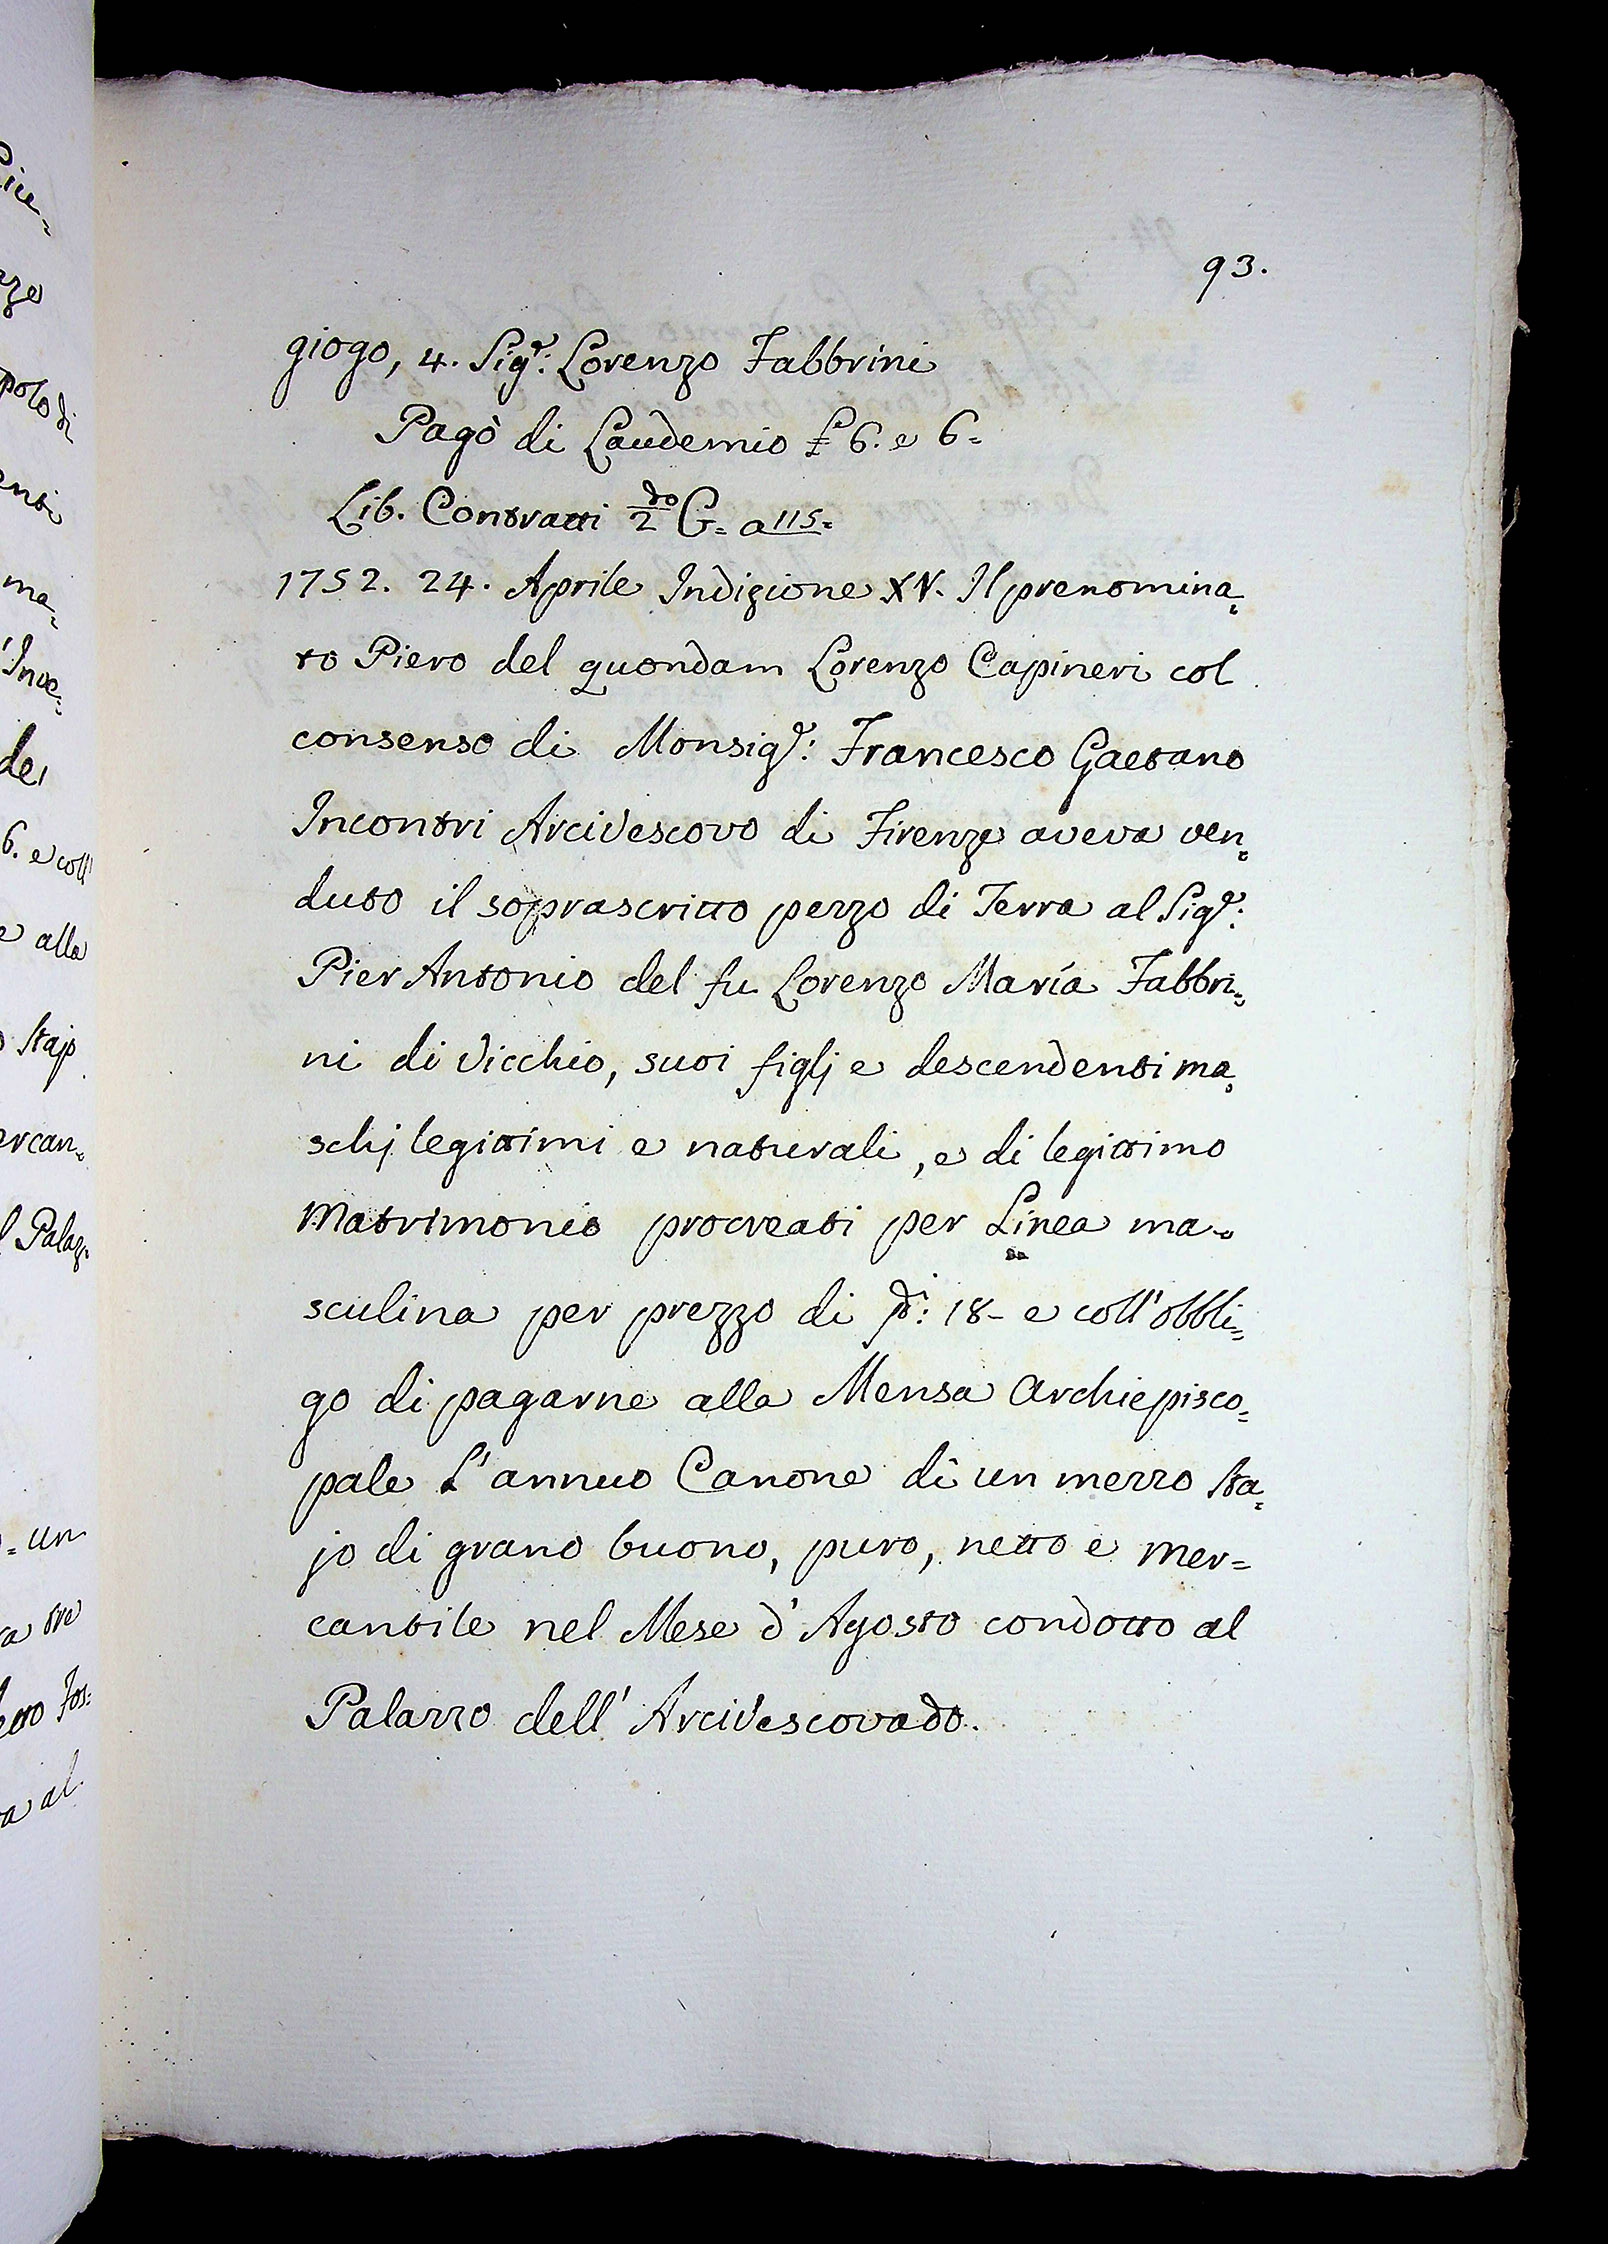 93.
giogo, 4. Sig.r: Lorenzo Fabbrini
Pagò di Laudemio £ 6. e 6=
Lib. Contratti 2do G= a 115=
1752. 24. Aprile Indizione XV. Il prenomina=
to Piero del quondam Lorenzo Capineri col
consenso di Monsig.r: Francesco Gaetano
Incontri Arcivescovo di Firenze aveva ven=
duto il soprascritto pezzo di Terra al Sig.r:
Pier Antonio del fu Lorenzo María Fabbri=
ni di Vicchio, suoi figlj e descendenti ma=
schj legittimi e naturali, e di legittimo
Matrimonio procreati per Linea ma=
sculina per prezzo di 18- e coll'obbli=
go di pagarne alla Mensa Archiepisco=
pale L'annuo Canone di un mezzo sta=
jo di grano buono, puro, netto e mer=
cantile nel Mese d'Agosto condotto al
Palazzo dell'Arcivescovado.